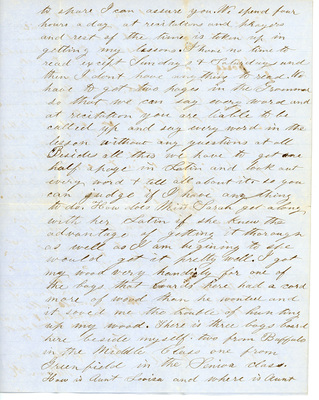 to share I can assure you. We spend four
hours a day at recitations and prayers
and rest of the time is taken up in
getting my lessons. I have no time to
read except Sundays & Saturdays and
then I don't have anything to read. We
have to get two pages in the Grammar
so that we can say every word and
at recitation you are liable to be
called up and say every word in the
lesson without any questions at all
Besides all this we have to get one
half a page in Latin and look out
every word & tell all about it so you
can judge if I have any thing
to do. How does Miss Sarah get along
with her Latin if she knew the
advantage of getting it thorough
as well as I am begining to she
would get it pretty well. I got
my wood very handily for one of
the boys that board here had a cord
more of wood than he wanted and
it saved me the trouble of hunting
up my wood. There is three boys board
here beside myself. two from Buffalo
in the Middle Class one from
Greenfield in the Senior class.
How is Aunt Louisa and where is Aunt